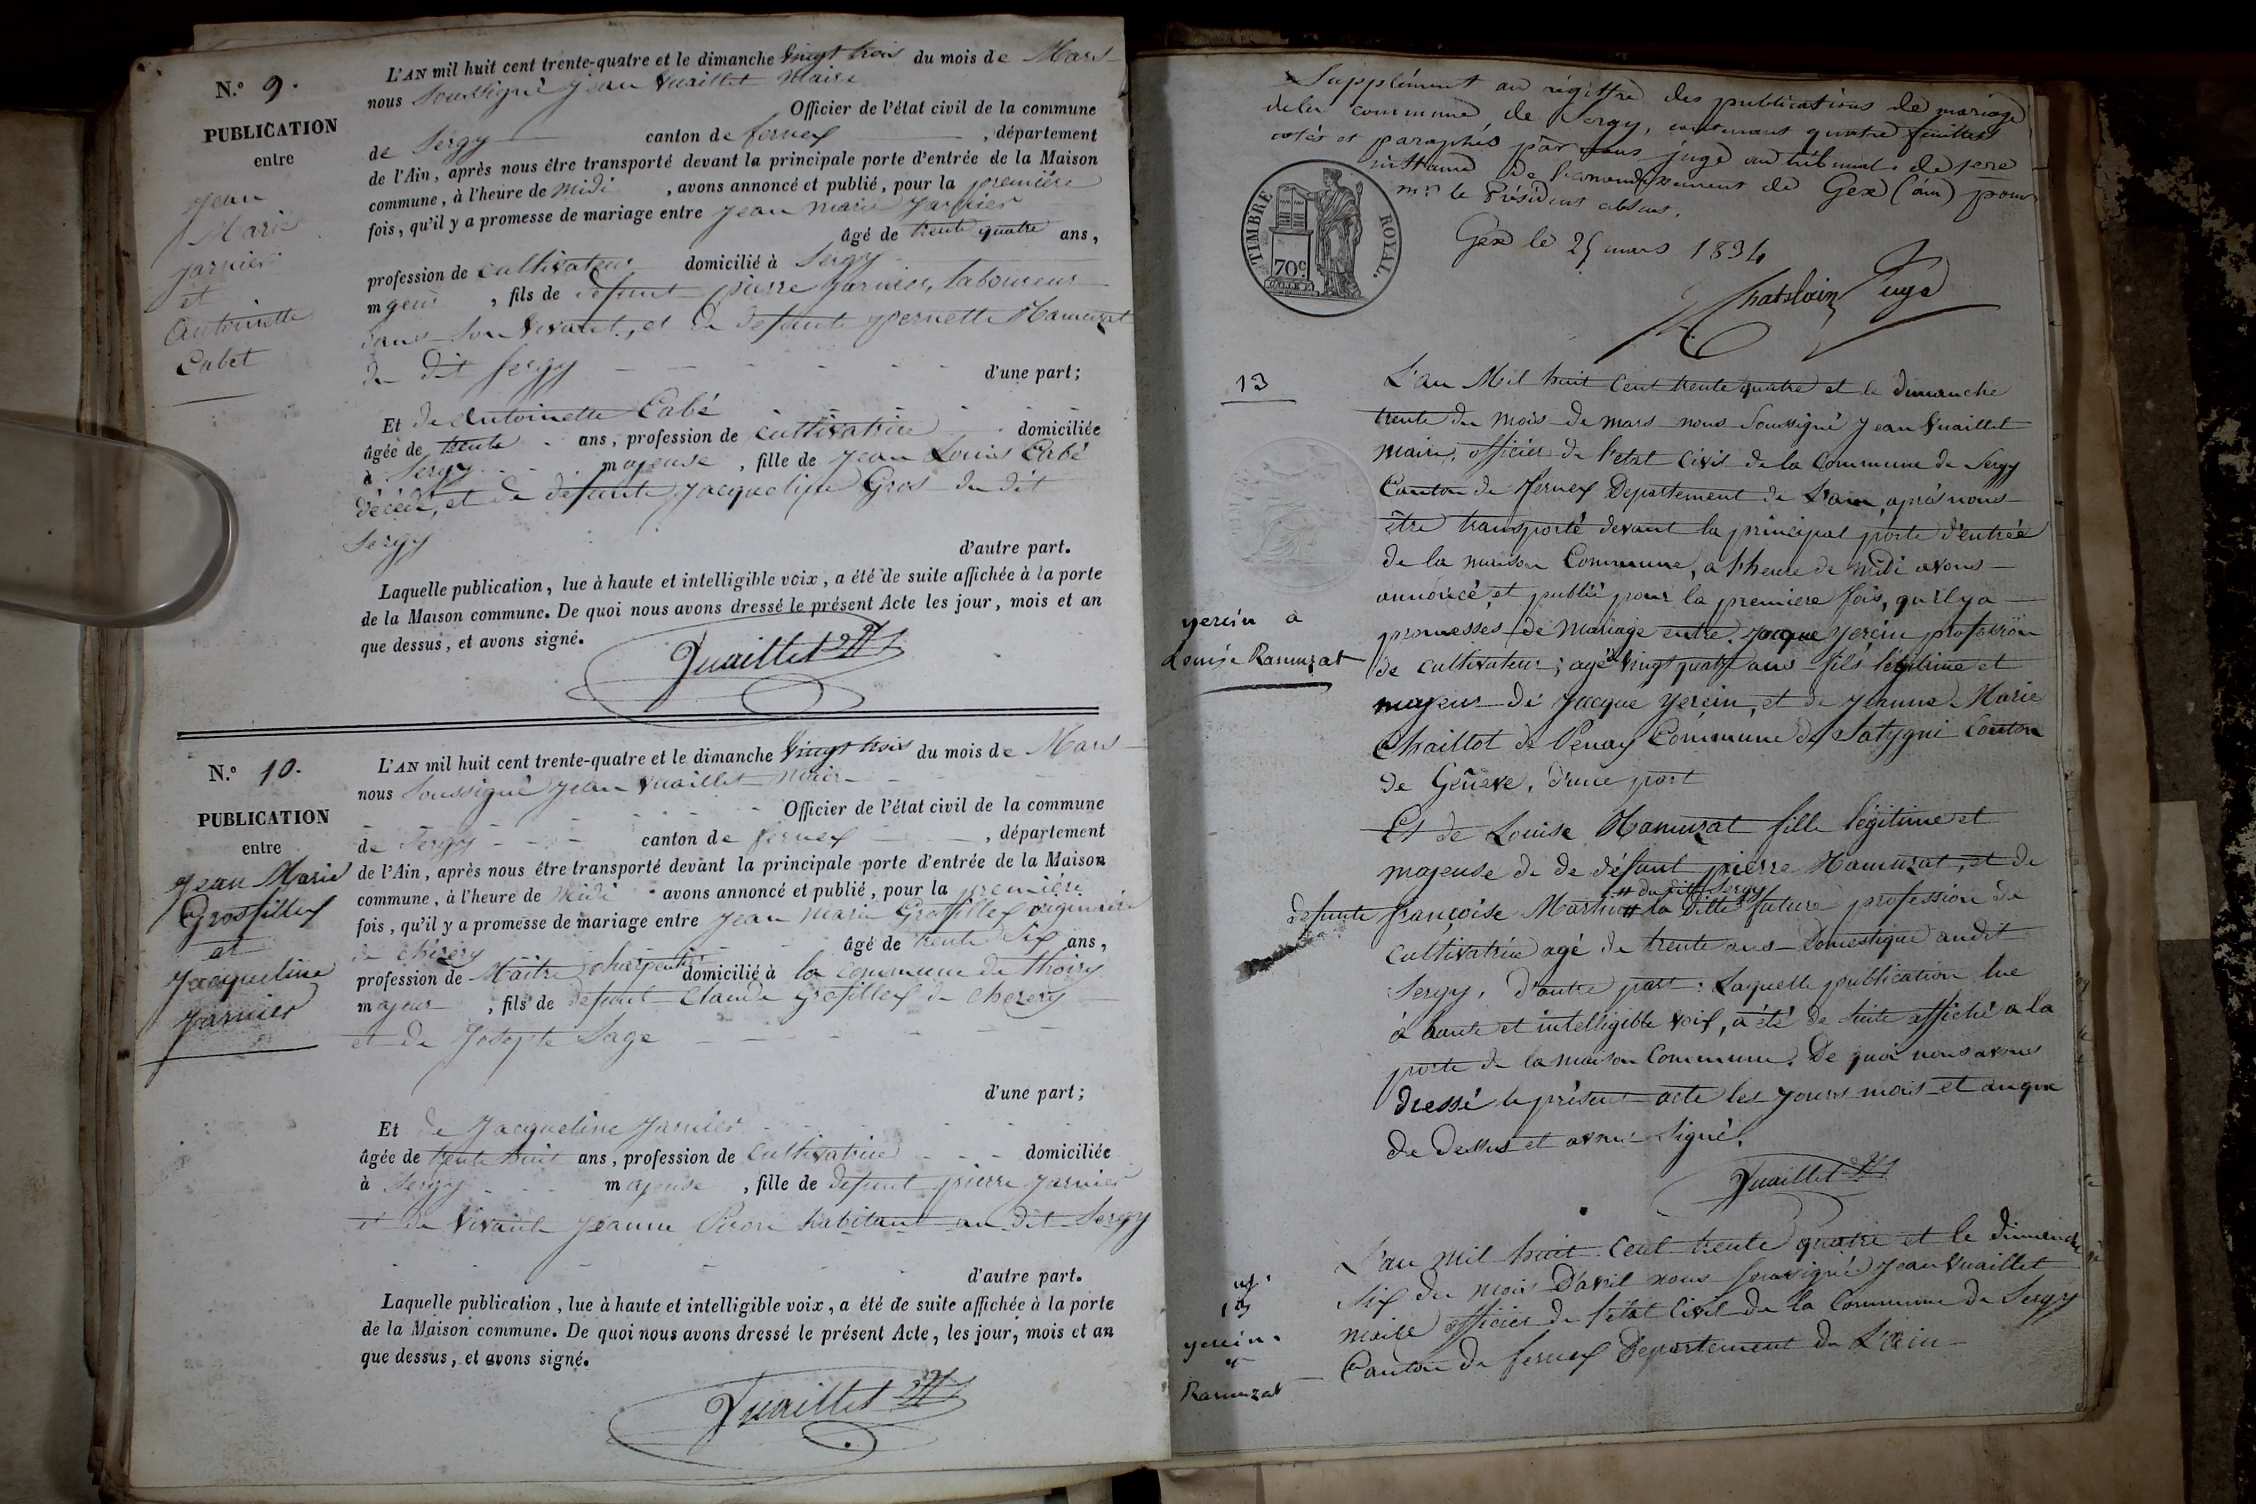 N.° 9.
PUBLICATION
entre
Jean
Marie
Jarnier
et
Antoinette
Cabet
L'AN mil huit cent trente-quatre et le dimanche vingt trois du mois de Mars
nous Soussigné Jean Vuaillet Maire
Officier de l'état civil de la commune
de Sergy canton de fernex , département
de l'Ain, après nous être transporté devant la principale porte d'entrée de la Maison
commune, à l'heure de midi , avons annoncé et publié, pour la première
fois, qu'il y a promesse de mariage entre Jean marie Jarnier
âgé de trente quatre ans,
profession de cultivateur domicilié à Sergy
mgeur , fils de defunt pierre Jarnier, laboureur
dans son vivant, et de defunte pernette Hamuzat
du dit Sergy
d'une part;
Et de Antoinette Cabé
âgée de trente ans, profession de cultivatrice domiciliée
à Sergy majeuse , fille de Jean Louis Cabé
décédé, et de defunte Jacqueline Gros du dit
Sergy
d'autre part.
Laquelle publication, lue à haute et intelligible voix, a été de suite affichée à la porte
de la Maison commune. De quoi nous avons dressé le présent Acte les jour, mois et an
que dessus, et avons signé.
Vuaillet
N.° 10.
PUBLICATION
entre
Jean Marie
Grosfillex
et
Jacqueline
Jarnier
L'AN mil huit cent trente-quatre et le dimanche vingt trois du mois de Mars
nous Soussigné Jean Vuaillet maire
Officier de l'état civil de la commune
de Sergy canton de fernex , département
de l'Ain, après nous être transporté devant la principale porte d'entrée de la Maison
commune, à l'heure de Midi avons annoncé et publié, pour la première
fois, qu'il y a promesse de mariage entre Jean marie Grosfillex originaire
de chézery âgé de trente six ans,
profession de Maitre charpentier domicilié à la commune de Thoiry
majeur , fils de defunt Claude Grofillex de chezery
et de Josephte Sage
d'une part;
Et de Jacqueline Jarnier
âgée de trente huit ans, profession de cultivatrice domiciliée
à Sergy majeuse , fille de defunt pierre Jarnier
et de vivante Jeanne habitant au dit Sergy
d'autre part.
Laquelle publication, lue à haute et intelligible voix, a été de suite affichée à la porte
de la Maison commune. De quoi nous avons dressé le présent Acte, les jour, mois et an
que dessus, et avons signé.
Vuaillet
Supplément au régistre des publications de mariage
de la commune de Sergy, contenant quatre feuillets
cotés et paraphés par nous juge au tribunal de 1ere
instance de l'arrondissement de Gex (ain) pour
mr le Président absent.
Gex le 25 mars 1834
Chatelain Juge
TIMBRE ROYAL.
70c
13
yerein a
Louise Ramuzat
L'an Mil huit cent trente quatre et le dimanche
trente du mois de mars nous Soussigné Jean Vuaillet
maire, officier de l'etat civil de la Commune de Sergy
Canton de Fernex Departement de L'ain, après nous
être transporté devant la principal porte d'entrée
de la maison Commune, a l'heure de midi avons
annoncé, et publié pour la premiere fois, qu'il y a
promesses de Mariage entre Jacque yerein profession
de cultivateur; agé vingt quatre ans fils légitime et
majeur de Jacque yerein, et de Jeanne Marie
Chaillot de Penay Commune de Satygni Canton
de Genève, d'une part
Et de Louise Hamuzat fille légitime et
majeuse de de défunt pierre Hamuzat, et de
# du dit Sergy
defunte françoise Martin # la ditte future profession de
cultivatrice agé de trente ans Domestique au dit
Sergy, d'autre part: Laquelle publication lue
à haute et intelligible voix, a été de suite affiché a la
porte de la maison Commune. De quoi nous avons
dressé le présent acte les jours mois et an que
de dessus et avons signé.
Vuaillet
yerein
et
Ramuzat
L'an mil huit cent trente quatre et le dimanche
six du mois D'avril nous soussigné Jean Vuaillet
maire officier de l'état civil de la Commune de Sergy
Canton de fernex Departement de L'ain